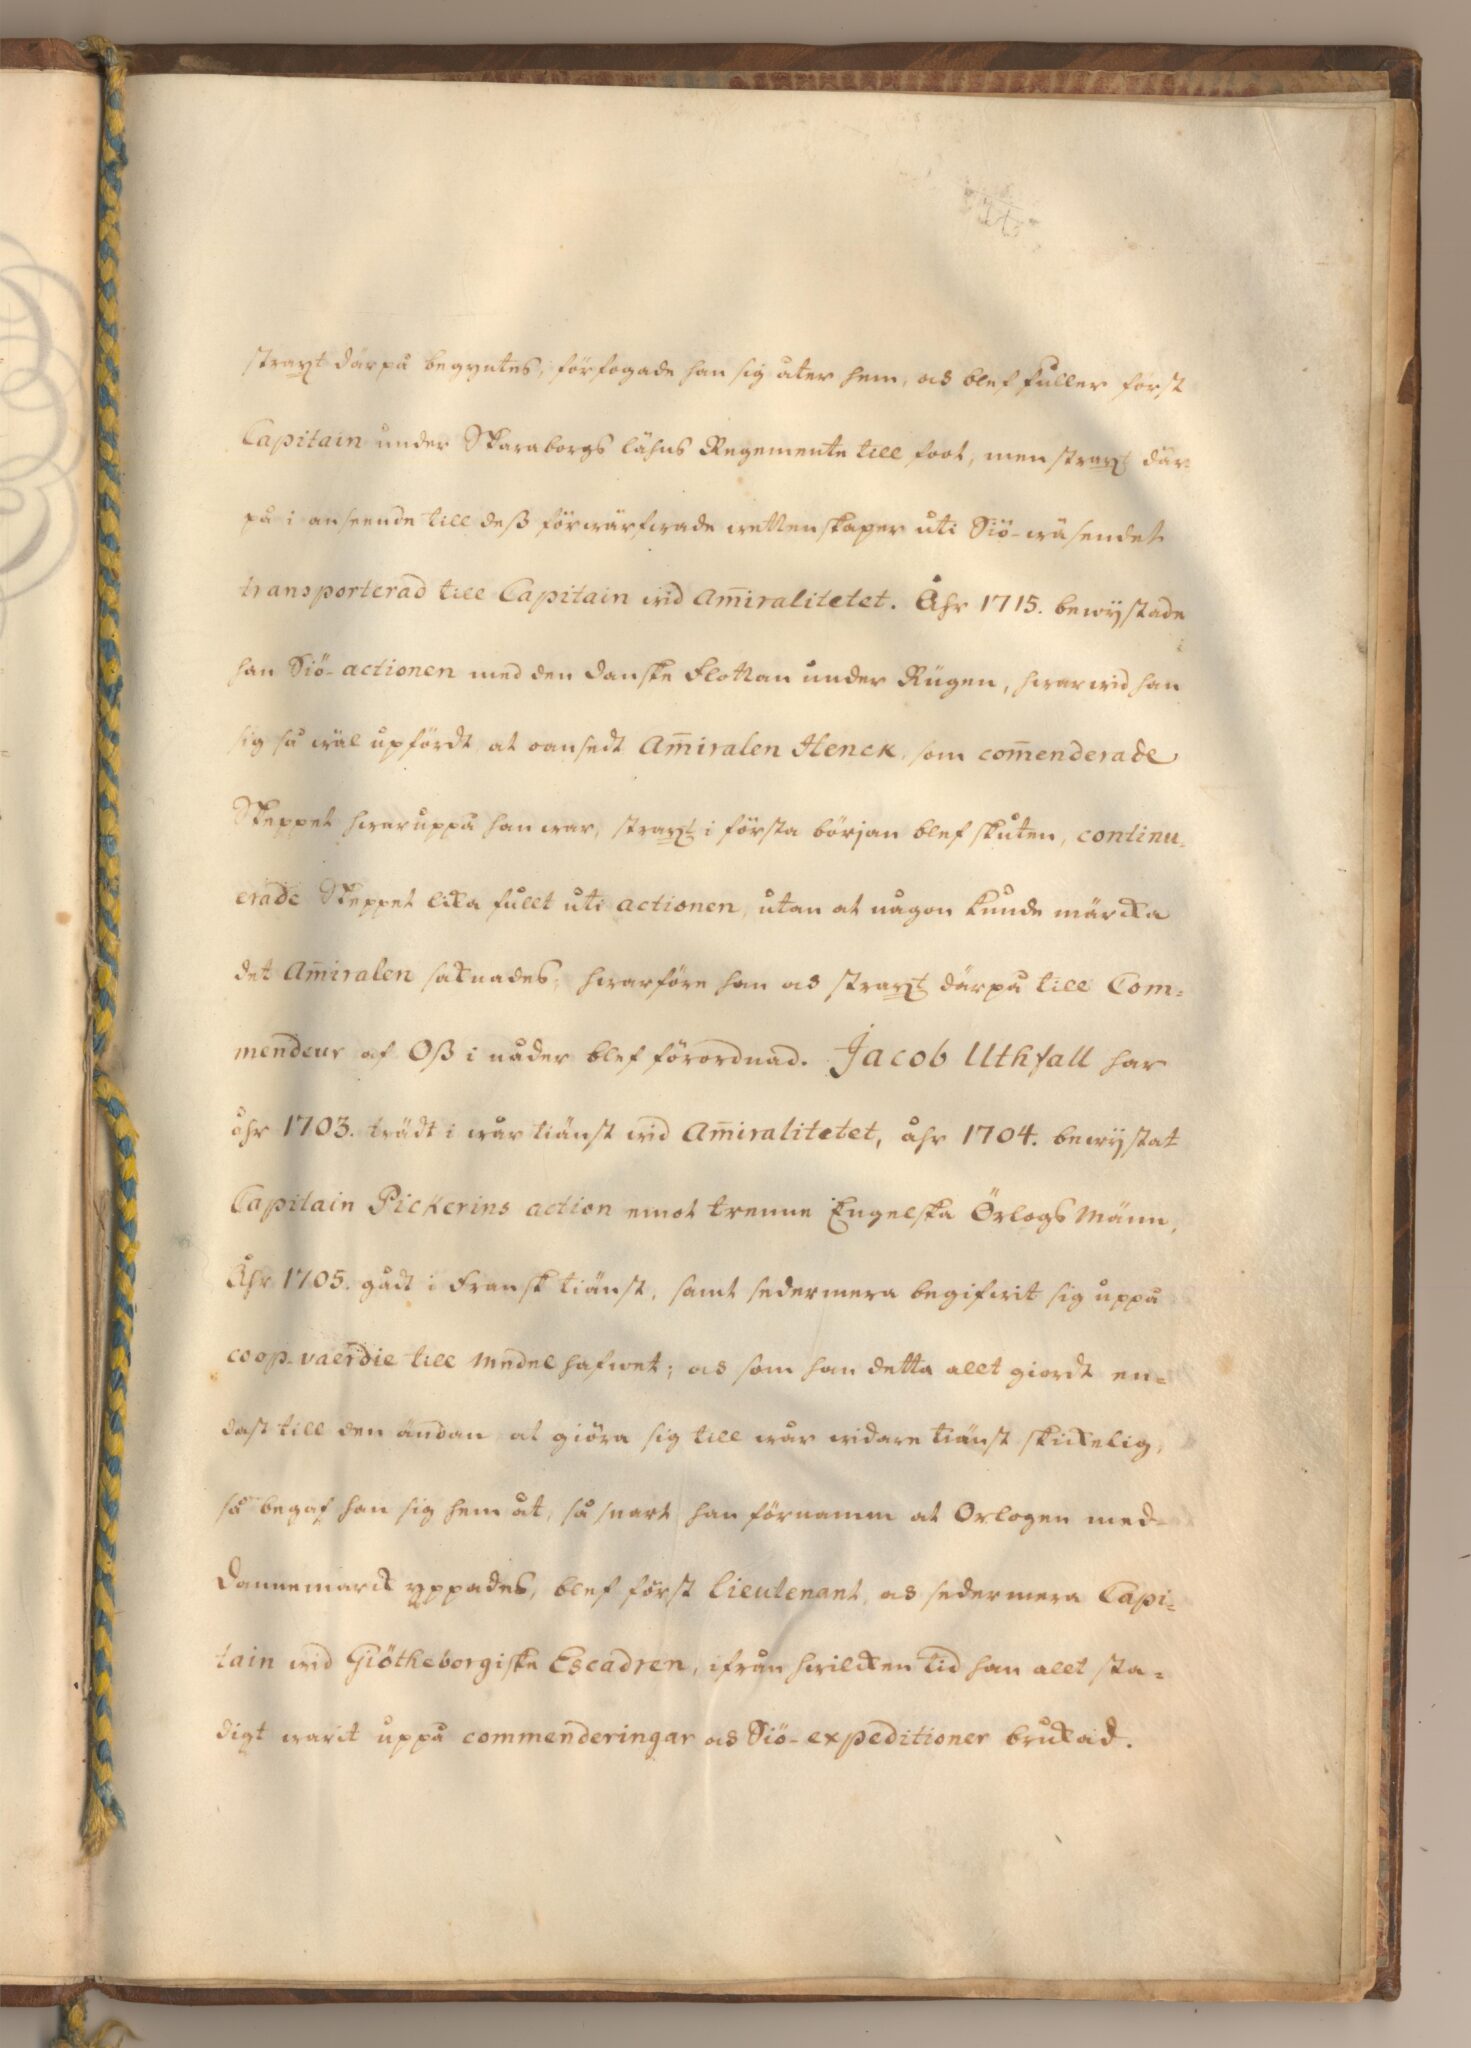 straxt därpå begyntes, förfogade han sig åter hem, os blef fuller först
Capitain under Skaraborgs lähns Regemente till foot, men straxt där-
på i anseende till deß förwärfwade wettenskaper uti Siö-wäsendet
transporterad till Capitain wid Am̄iralitetet. Åhr 1715. bewijstade
han Siö-actionen med den danske Flottan under Rügen, hwarwid han
sig så wäl upfördt, at oansedt Am̄iralen Henck, som com̄enderade
Skeppet hwaruppå han war, straxt i första början blef skuten, continu-
erade Skeppet lika fullt uti actionen, utan at någon kunde märcka
det Am̄iralen saknades; hwarföre han os straxt därpå till Com-
mendeur af Oß i nåder blef förordnad. Jacob Uthfall har
åhr 1703. trädt i wår tiänst wid Am̄iralitetet, åhr 1704. bewijstat
Capitain Pickerins action emot trenne Engelska Örlogs Männ,
Åhr 1705. gådt i Fransk tiänst, samt sedermera begifwit sig uppå
coop-vaerdie till Medelhafwet; os som han detta allt giordt en-
dast till den ändan at giöra sig till wår widare tiänst skickelig,
så begaf han sig hem åt, så snart han förnamm at Orlogen med
Dannemarck yppades, blef först Lieutenant, os sedermera Capi-
tain wid Giötheborgiske Escadren, ifrån hwilcken tid han allt sta-
digt warit uppå commenderingar os Siö-expeditioner bruckad.